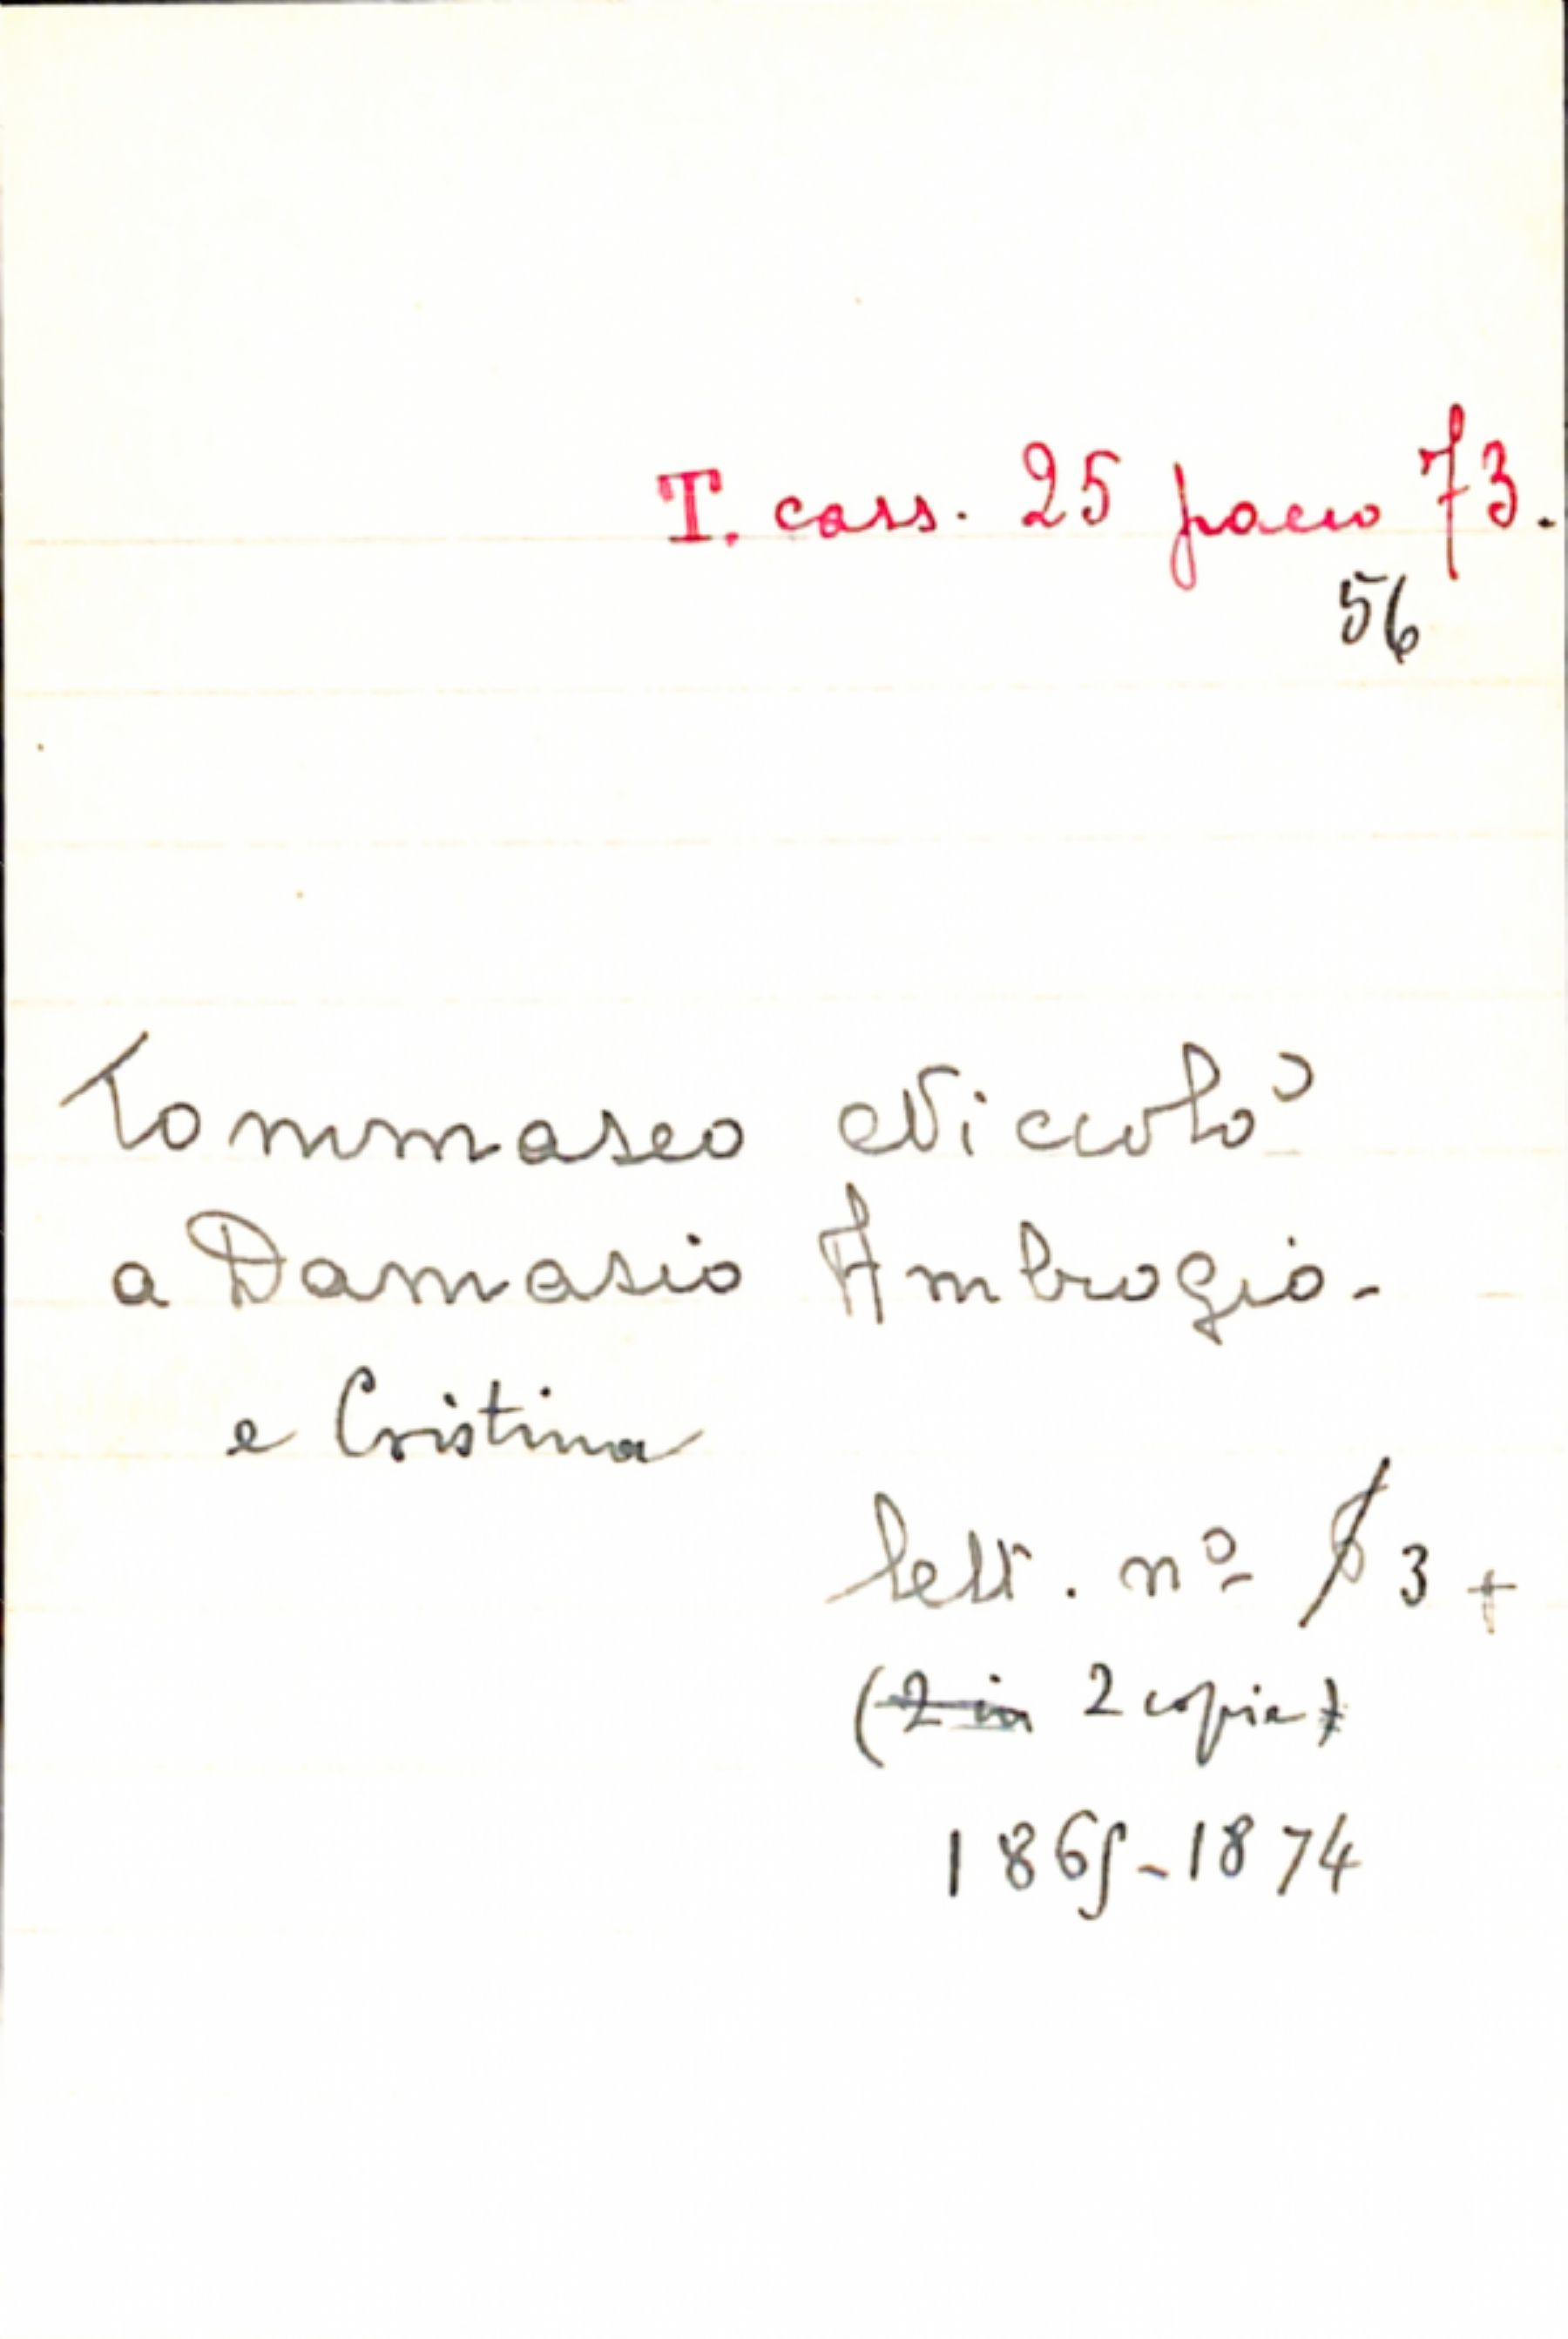 T. cass. 25 pacco 73.
56
Tommaseo Niccolò
a Damasio Ambrogio.
e Cristina
lett. nº 3 +
(2 in 2 copie)
1865-1874